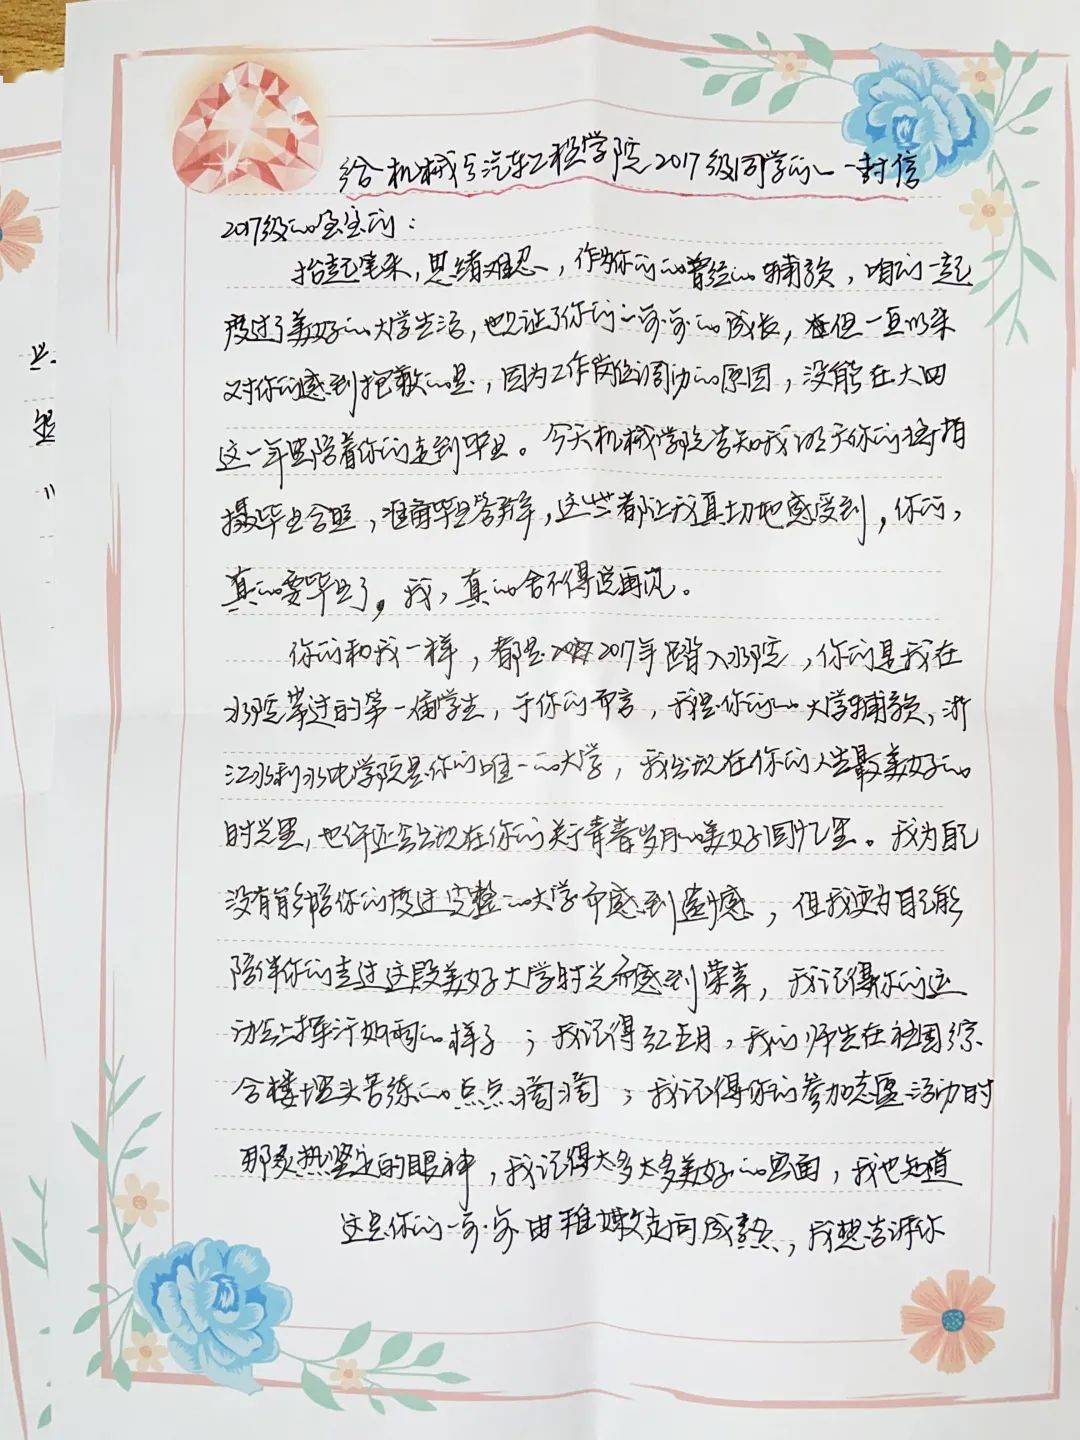 给机械与汽车工程学院2017级同学的一封信
2017级的宝宝们：
抬起笔来，思绪难忍，作为你们的曾经的辅导员，咱们一起
度过了美好的大学生活，也见证了你们一步步的成长，但一直以来
对你们感到抱歉的是，因为工作岗位调动的原因，没能在大四
这一年里陪着你们走到毕业。今天机械学院告知我明天你们将拍
摄毕业合照，准备毕业答辩，这些都让我真切地感受到，你们，
真的要毕业了，我，真的舍不得说再见。
你们和我一样，都是2017年踏入水院，你们是我在
水院带过的第一届学生，于你们而言，我是你们的大学辅导员，浙
江水利水电学院是你们唯一的大学，我出现在你们人生最美好的
时光里，也许还会出现在你们关于青春岁月的美好回忆里。我为自己
没有能陪你们度过完整的大学而感到遗憾，但我更为自己能
陪伴你们走过这段美好大学时光而感到荣幸，我记得你们运
动会上挥汗如雨的样子；我记得红五月，我们师生在校园综
合楼埋头苦练的点点滴滴；我记得你们参加志愿活动时
那炙热坚定的眼神，我记得太多太多美好的画面，我也知道
这是你们一步步由稚嫩走向成熟，我想告诉你